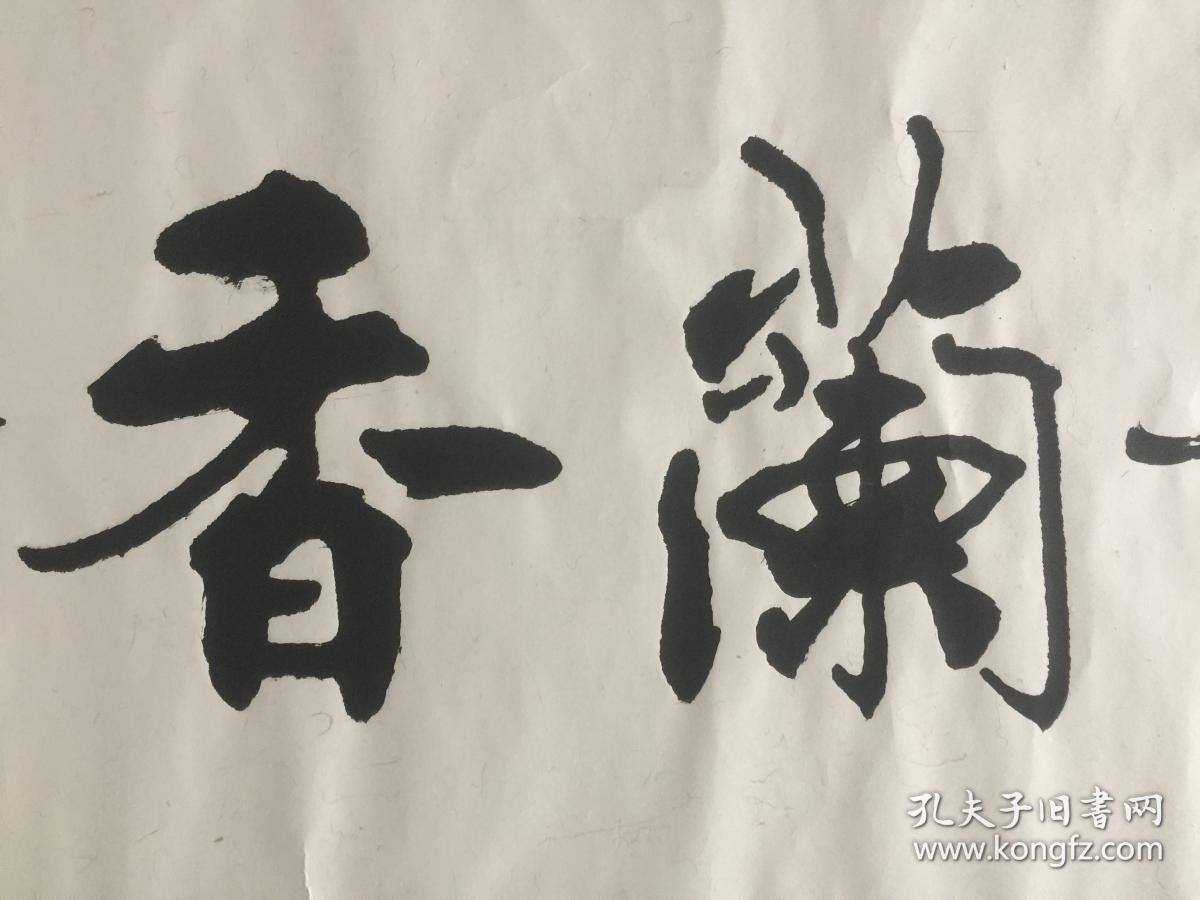 蘭香
孔夫子旧書网
www.kongfz.com